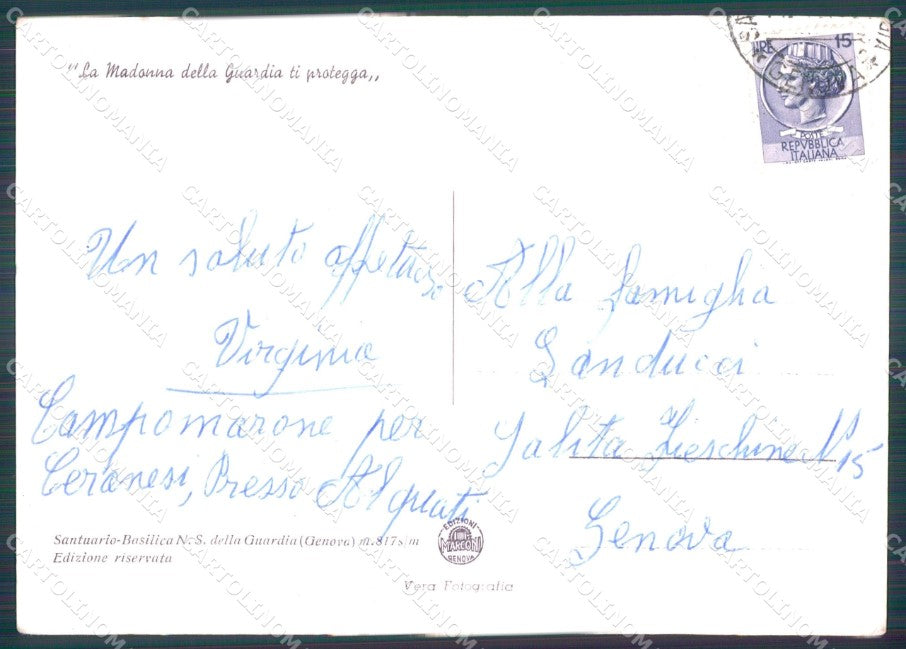 "La Madonna della Guardia ti protegga„
LIRE 15
GENOVA
POSTE
REPVBBLICA
ITALIANA
Un saluto affettuoso
Virginia
Campomarone per
Ceranesi, Presso Alquati
Alla famiglia
Landucci
Salita Fieschine N 15
Genova
Santuario-Basilica N. S. della Guardia (Genova) m. 817 s/m
Edizione riservata
EDIZIONI
MARCONI
GENOVA
Vera Fotografia
CARTOLINOMANIA